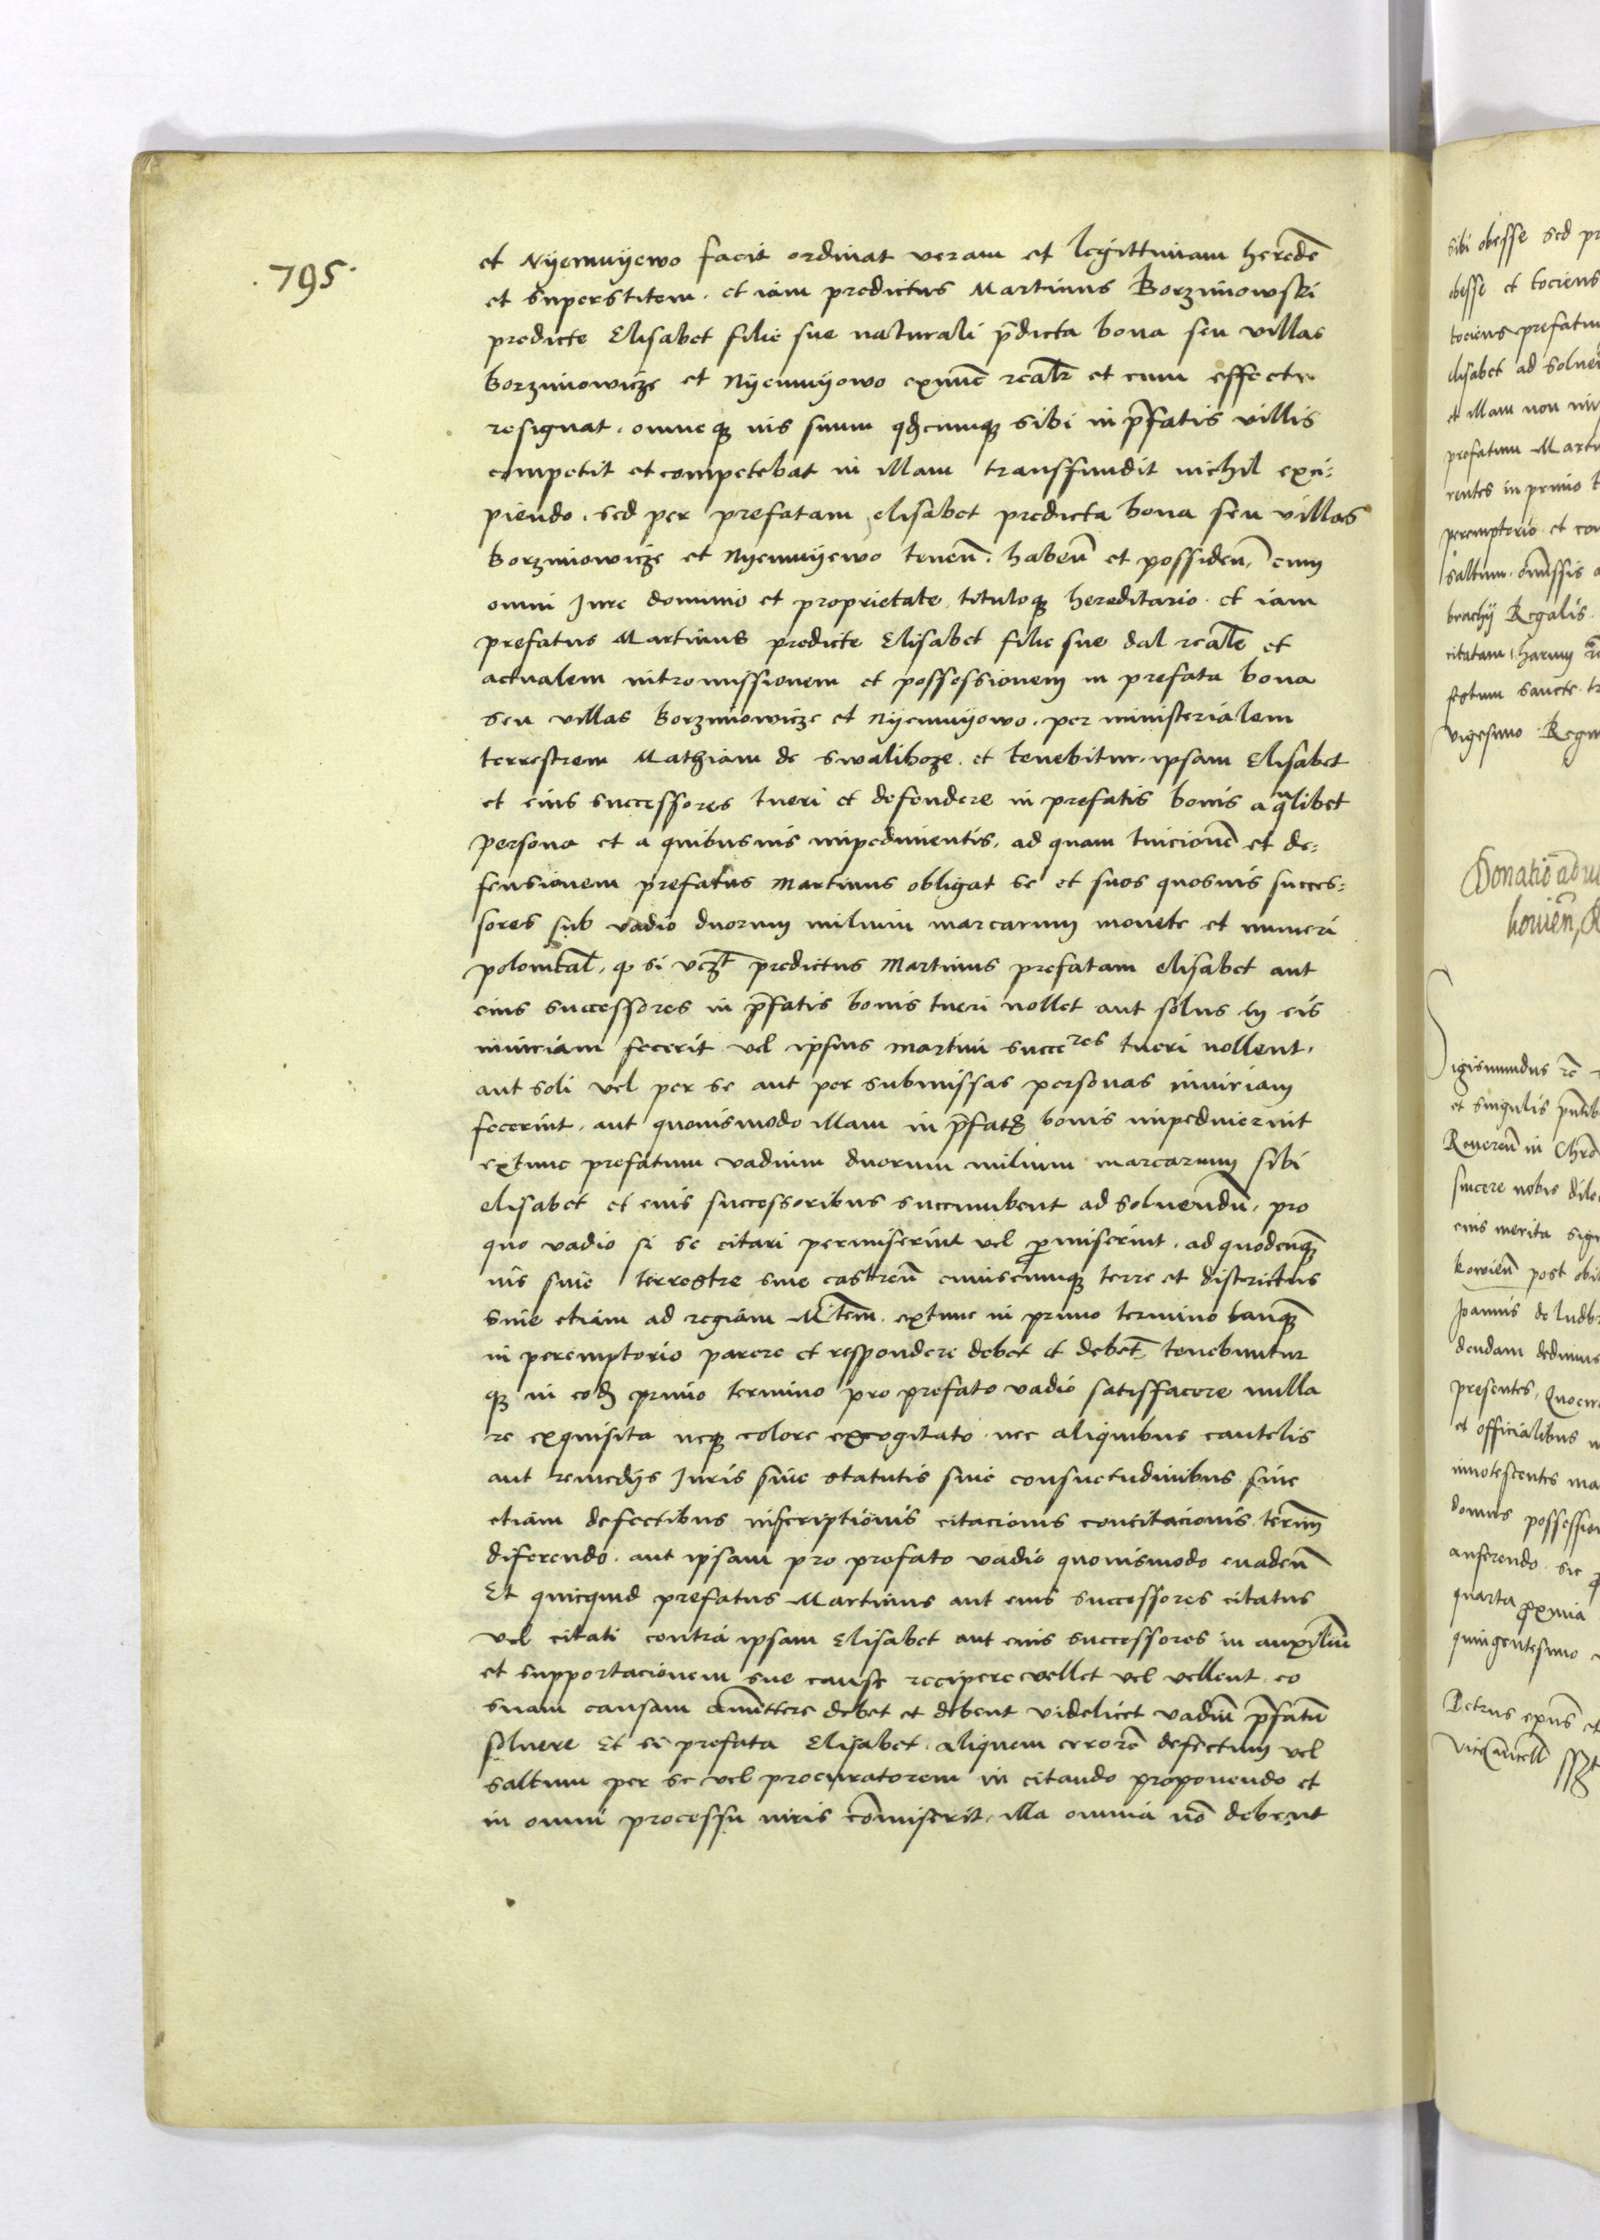 .795.
et Nyemyyewo facit ordinat veram et legittimam heredē
et superstitem. et iam predictus Martinus Borzimowski
predicte Elisabet filie sue naturali p̄dicta bona seu villas
Borzimowicze et Nyemyyewo exnūc realr̄ et cum effectu
resignat. omneqꝫ ius suum qd̄cumqꝫ sibi in p̄fatis villis
competit et competebat in illam transfundit nichil exci:
piendo. sed per prefatam elisabet predicta bona seu villas
Borzimowicze et Nyemyyewo tenen̄. haben̄ et possiden̄, cum
omni Jure dominio et proprietate tituloqꝫ hereditario. et iam
prefatus Martinus predicte Elisabet filie sue dat realē et
actualem intromissionem et possessionem in prefata bona
seu villas Borzimowicze et Nyemyyewo. per ministerialem
terrestrem Mathiam de Swaliboze. et tenebitur ipsam Elisabet
et eius successores tueri et defendere in prefatis bonis a qualibet
persona et a quibusuis impedimentis. ad quam tuicionē et de:
fensionem prefatus Martinus obligat se et suos quosuis succes:
sores sub vadio duorum milium marcarum monete et numeri
polonical̄. qꝫ si predictus Martinus prefatam elisabet aut
eius successores in p̄fatis bonis tueri nollet aut solus in eis
iniuriam fecerit vel ipsius Martini succeres tueri nollent.
aut soli vel per se aut per submissas personas iniuriam
fecerint. aut quouismodo illam in p̄fatꝭ bonis impedierint
extunc prefatum vadium duorum milium marcarum sibi
elisabet et eius successoribus succumbent ad soluendū, pro
quo vadio si se citari permiserint vel p̄miserint. ad quodcūqꝫ
ius siue terrestre siue castren̄ cuiuscumqꝫ terre et districtus
siue etiam ad regiam Mtem̄. extunc in primo termino tanqꝫ
in peremptorio parere et respondere debet et debēt tenebuntur
qꝫ in eod̄ primo termino pro prefato vadio satisfacere nulla
re exquisita neqꝫ colore excogitato nec aliquibus cautelis
aut remedys Juris siue statutis siue consuetudinibus siue
etiam defectibus inscriptionis citacionis concitacionis termīn
diferendo. aut ipsam pro prefato vadio quouismodo euaden̄
Et quicquid prefatus Martinus aut eius successores citatus
vel citati contra ipsam Elisabet aut eius successores in auxiliū
et supportacionem sue cause recipere vellet vel vellent eo
suam causam am̄ittere debet et debent videlicet vadiū p̄fatū
soluere Et si prefata Elisabet aliquem errorē defectum vel
saltum per se vel procuratorem in citando proponendo et
in omni processu iuris com̄iserit. illa omnia nō debent
sibi obesse sed
obesse et tociens
tociens
ad
et illam non
prefatum
rentes in primo
peremptorio et
saltum. omissis
brachy Regalis.
citatam. harum
festum sancte
vigesimo. Regni
Donatiō
Sigismundus
et singulis
Reueren̄ in
sincere nobis
eius merita
post
Joannis de
dendam
presentes,
et officialibus
innotescentes
domus
auferendo. sic
quarta proxima
quingentesimo
Petrus ep̄us et